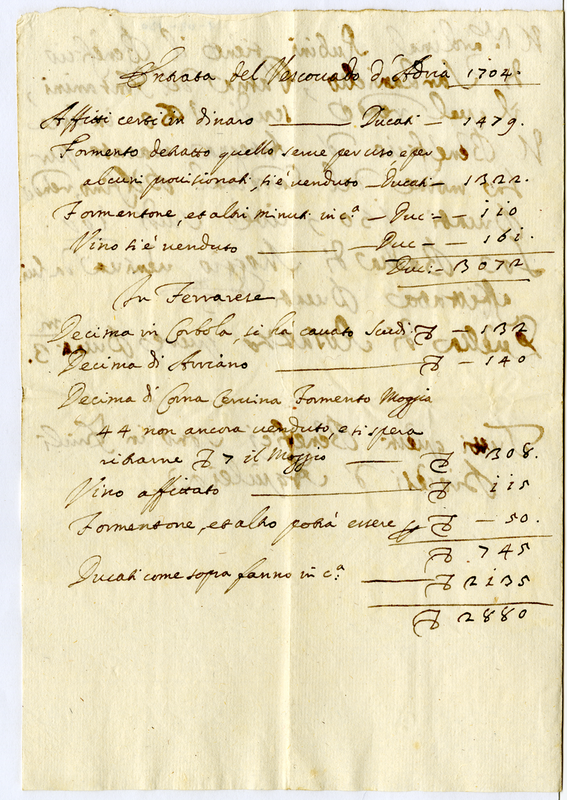 Entrata del Vescovado d'Adria 1704.
Affitti certi in dinaro — Ducati — 1479.
Formento detratto quello serve per uso e per
alcuni provisionati, si è venduto — Ducati — 1322.
Formentone, et altri minuti in c.ª — Duc: — 110
Vino si è venduto — Duc — 161.
Duc: — 3072
In Ferrarese
Decima in Corbola, si ha cavato Scudi — 132
Decima di Ariano — 140
Decima di Corna Cervina Formento Moggia
44 non ancora venduto, e si spera
ritrarne 7 il Moggio — 308.
Vino affittato — 115
Formentone, et altro potrà essere — 50.
745
Ducati come sopra fanno in c.ª — 2135
2880